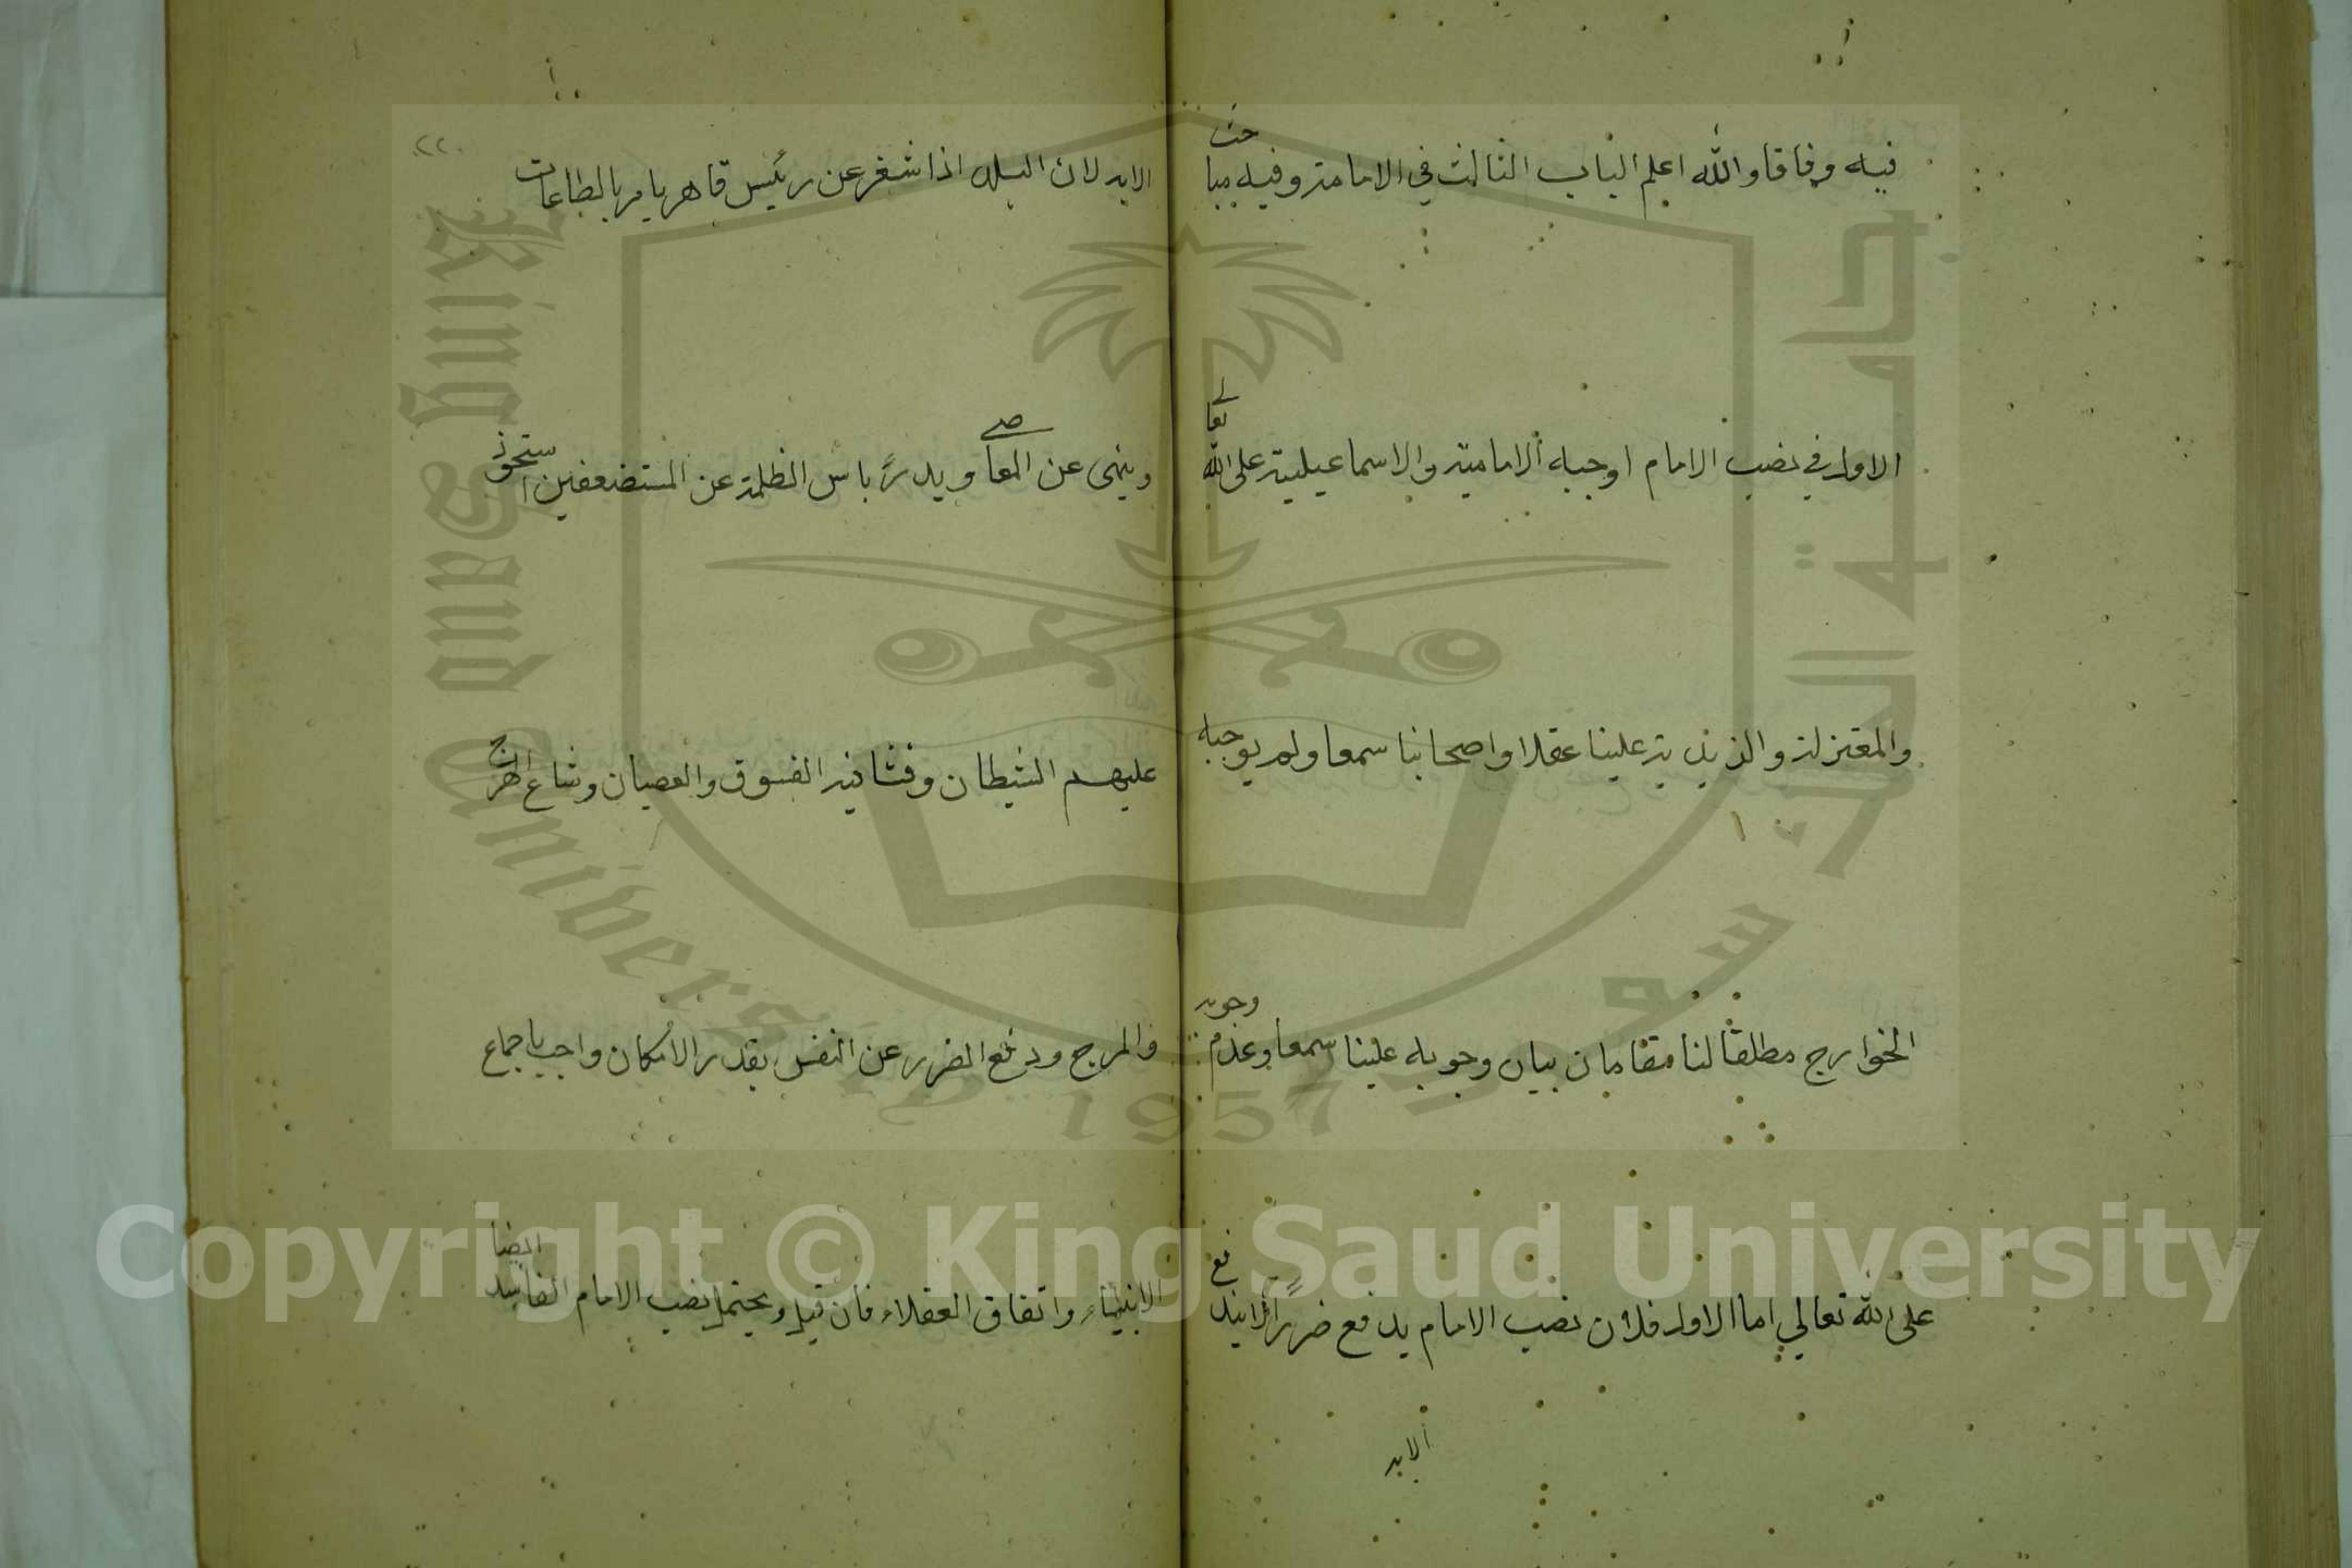 فيه وفاقا والله اعلم الباب الثالث في الامامة وفيه مباحث
الاول في نصب الامام اوجبه الامامية والاسماعيلية على الله تعالى
والمعتزلة والزيدية علينا عقلا واصحابنا سمعا ولم يوجبه
الخوارج مطلقا لنا مقامان بيان وجوبه علينا سمعا وعدم وجوبه
على الله تعالى اما الاول فلان نصب الامام يدفع ضررا لا يندفع
الا به
٢٢٠
الا به لان البلد اذا شغر عن رئيس قاهر يامر بالطاعات
وينهى عن المعاصي ويدرأ باس الظلمة عن المستضعفين استحوذ
عليهم الشيطان وفشا فيه الفسوق والعصيان وشاع الهرج
والمرج ودفع الضرر عن النفس بقدر الامكان واجب باجماع
الانبياء واتفاق العقلاء فان قيل ويحتمل نصب الامام المفاسد ايضا
King Saud University
جامعة الملك سعود
1957
Copyright © King Saud University